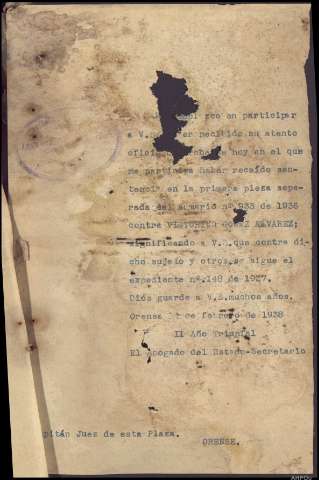 en participar
a V. haber recibido su atento
oficio hoy en el que
me participa haber recaído sen-
tencia en la primera pieza sepa-
rada del sumario nº 933 de 1936
contra GOMEZ ALVAREZ;
significando a V.S. que contra di-
cho sujeto y otros, se sigue el
expediente nº.148 de 1937.
Diós guarde a V.S.muchos años.
Orense de febrero de 1938
II Año Triunfal
El Abogado del Estado-Secretario
pitán Juez de esta Plaza.
ORENSE.
AHPOu